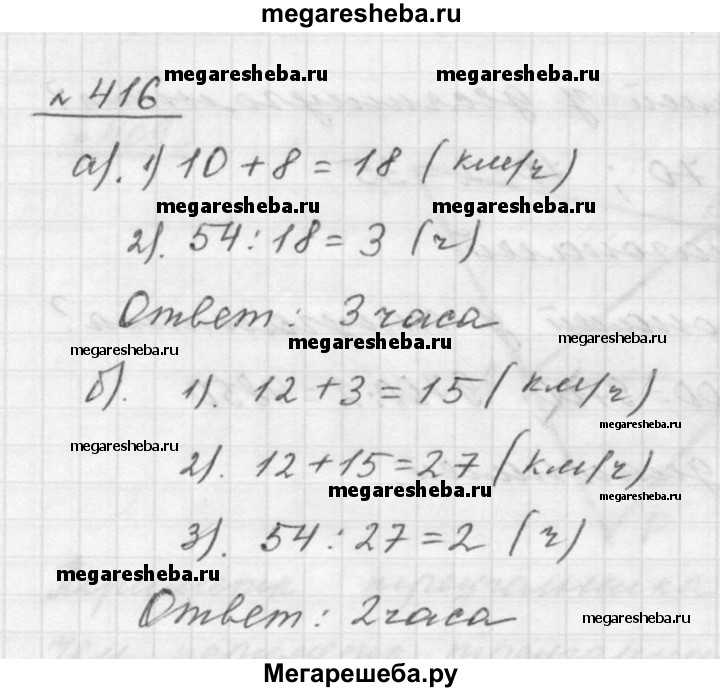 megaresheba.ru
megaresheba.ru megaresheba.ru
№ 416
а). 1) 10 + 8 = 18 (км/ч)
megaresheba.ru megaresheba.ru
2). 54 : 18 = 3 (ч)
Ответ: 3 часа
megaresheba.ru megaresheba.ru megaresheba.ru
б). 1). 12 + 3 = 15 (км/ч)
megaresheba.ru
megaresheba.ru
2). 12 + 15 = 27 (км/ч)
megaresheba.ru megaresheba.ru
3). 54 : 27 = 2 (ч)
megaresheba.ru
Ответ: 2 часа
megaresheba.ru
Мегарешеба.ру